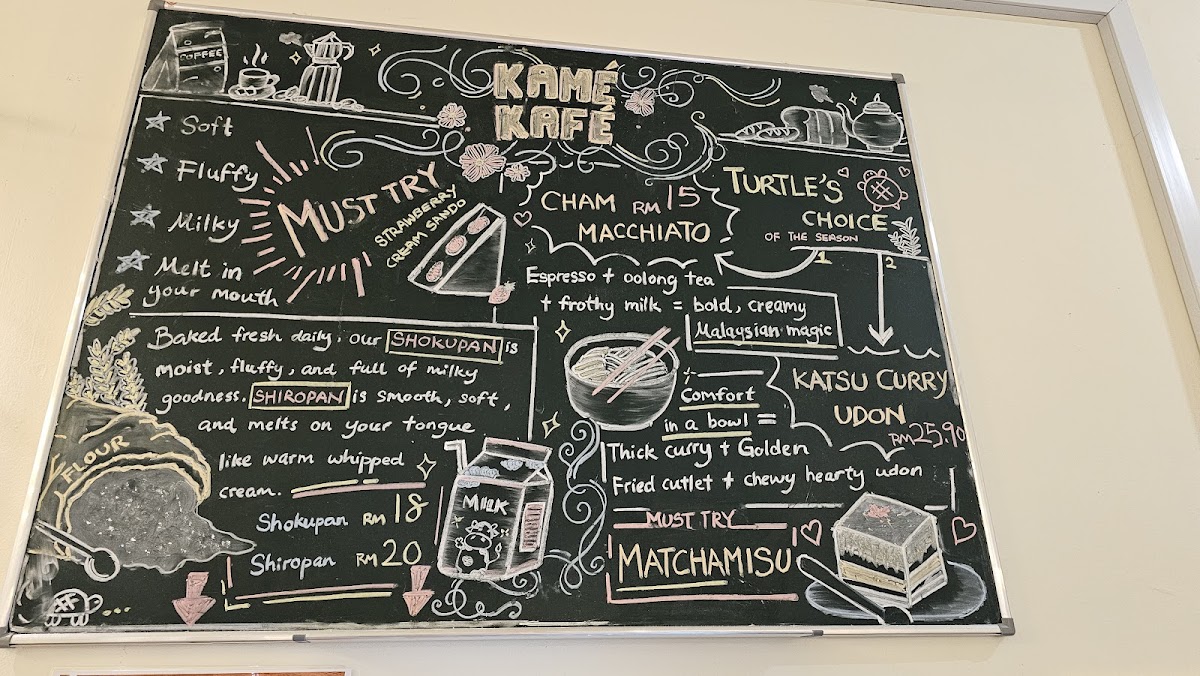 COFFEE
KAMÉ
KAFÉ
Soft
Fluffy
Milky
Melt in
your mouth
MUST TRY
STRAWBERRY
CREAM SANDO
CHAM RM 15
MACCHIATO
TURTLE'S
CHOICE
OF THE SEASON
1
2
Espresso + oolong tea
+ frothy milk = bold, creamy
Malaysian magic
Baked fresh daily, our SHOKUPAN is
moist, fluffy, and full of milky
goodness. SHIROPAN is smooth, soft,
and melts on your tongue
like warm whipped
cream.
FLOUR
Shokupan RM 18
Shiropan RM 20
MILK
KATSU CURRY
UDON
RM 25.90
Comfort
in a bowl =
Thick curry + Golden
Fried cutlet + chewy hearty udon
MUST TRY
MATCHAMISU